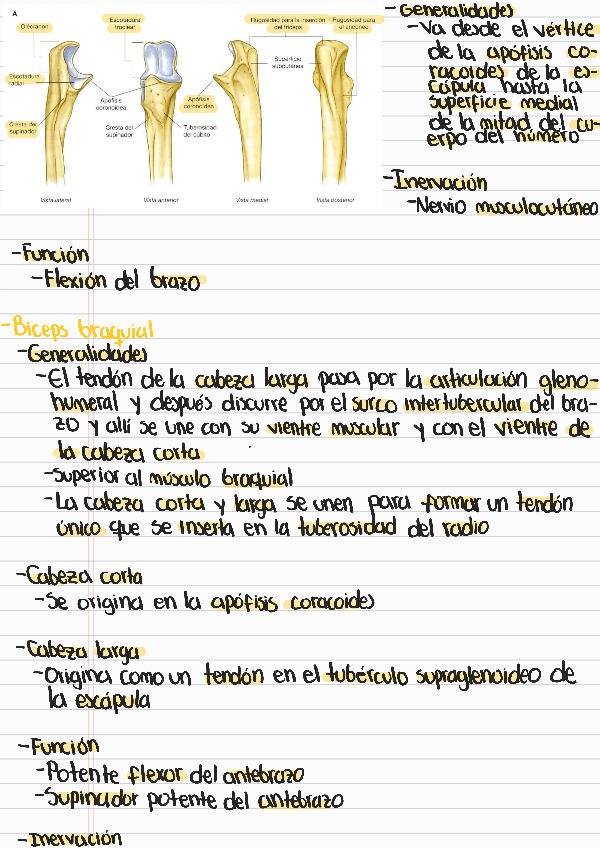 A
Olécranon
Escotadura
troclear
Rugosidad para la inserción
del tríceps
Rugosidad para
el ancóneo
Escotadura
radial
Apófisis
coronoidea
Apófisis
coronoidea
Superficie
subcutánea
Cresta del
supinador
Cresta del
supinador
Tuberosidad
del cúbito
Vista lateral
Vista anterior
Vista medial
Vista posterior
- Generalidades
- Va desde el vértice
de la apófisis co-
racoides de la es-
cápula hasta la
superficie medial
de la mitad del cu-
erpo del húmero
- Inervación
- Nervio musculocutáneo
- Función
- Flexión del brazo
- Biceps braquial
- Generalidades
- El tendón de la cabeza larga pasa por la articulación gleno-
humeral y después discurre por el surco intertubercular del bra-
zo y allí se une con su vientre muscular y con el vientre de
la cabeza corta
- Superior al músculo braquial
- La cabeza corta y larga se unen para formar un tendón
único que se inserta en la tuberosidad del radio
- Cabeza corta
- Se origina en la apófisis coracoides
- Cabeza larga
- Origina como un tendón en el tubérculo supraglenoideo de
la escápula
- Función
- Potente flexor del antebrazo
- Supinador potente del antebrazo
- Inervación